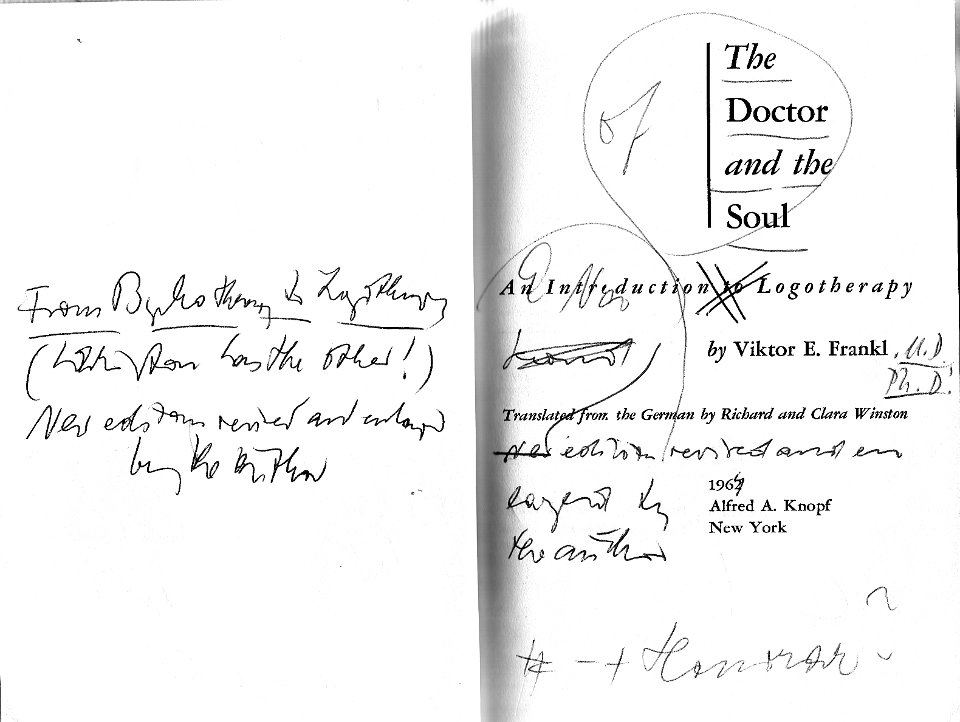 From Psychotherapy to Logotherapy
( has the other!)
New edition revised and enlarged
by the author
The
Doctor
and the
Soul
of
An Introduction to Logotherapy
by Viktor E. Frankl, M.D.
Ph.D.!
Translated from the German by Richard and Clara Winston
New edition revised and en
larged by
the author
196
Alfred A. Knopf
New York
Honorar